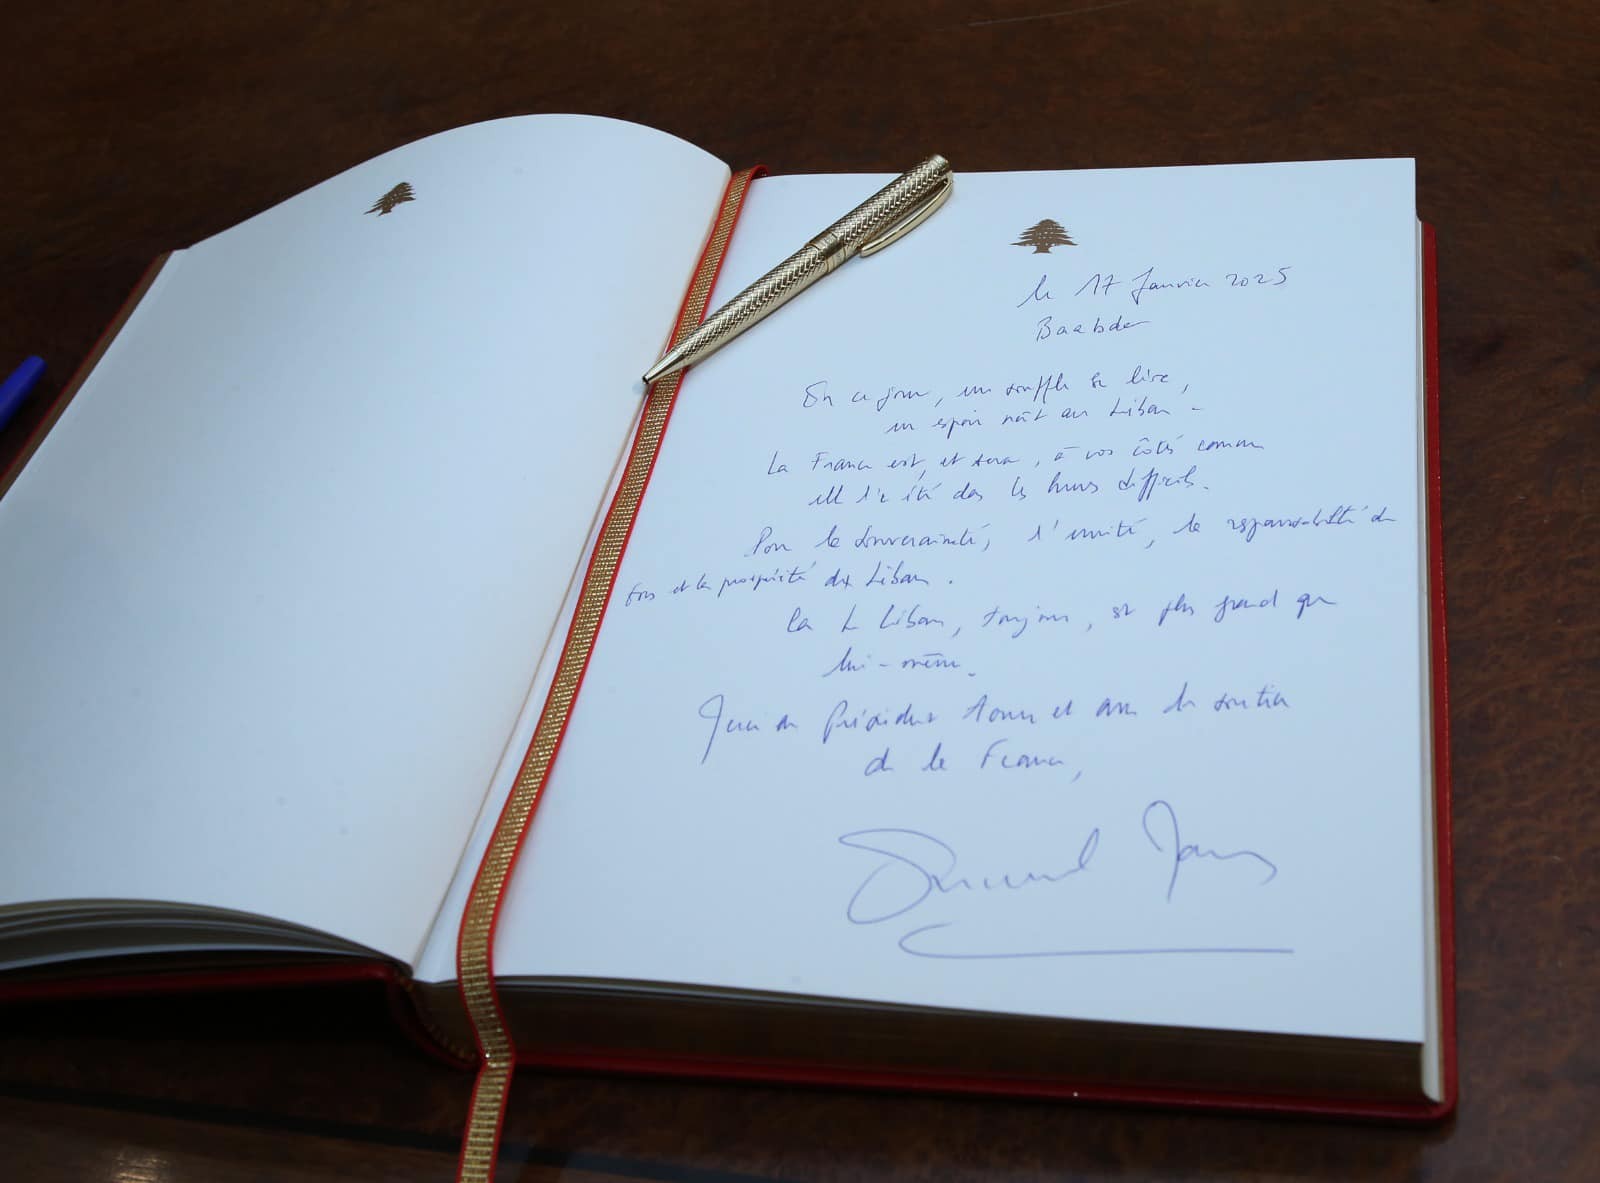 le 17 Janvier 2025
Baabda
En ce jour, un souffle se lève,
un espoir naît au Liban.
La France est, et sera, à vos côtés comme
elle l'a été dans les heures difficiles.
Pour la souveraineté, l'unité, la responsabilité de
tous et la prospérité du Liban.
Car le Liban, toujours, est plus grand que
lui-même.
Merci au Président Aoun et avec le soutien
de la France,
Emmanuel Macron